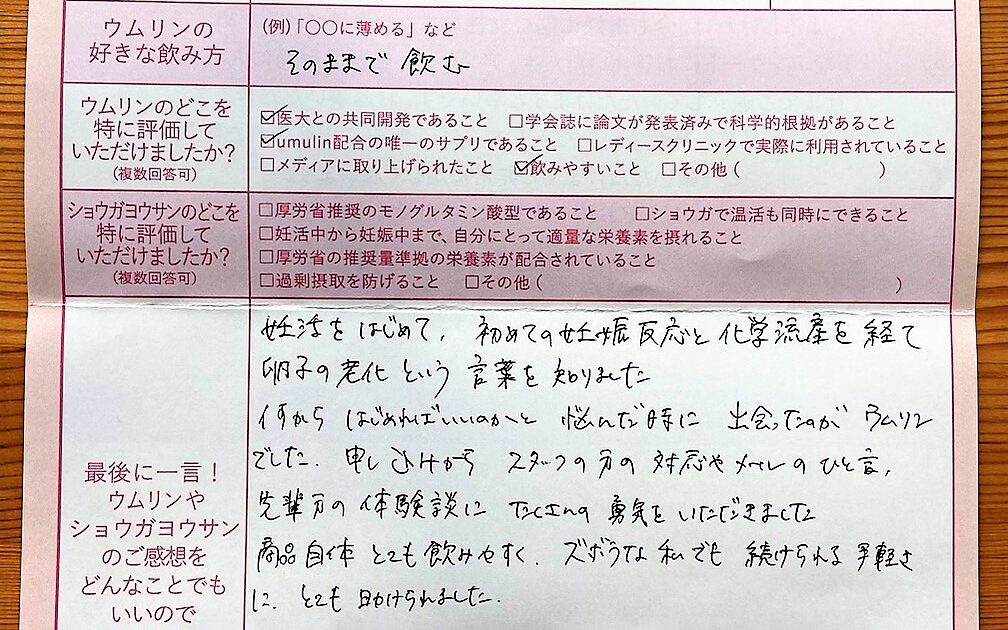 ウムリンの
好きな飲み方
(例)「〇〇に薄める」など
そのままで飲む
ウムリンのどこを
特に評価して
いただけましたか?
(複数回答可)
☑医大との共同開発であること □学会誌に論文が発表済みで科学的根拠があること
☑umulin配合の唯一のサプリであること □レディースクリニックで実際に利用されていること
□メディアに取り上げられたこと ☑飲みやすいこと □その他( )
ショウガヨウサンのどこを
特に評価して
いただけましたか?
(複数回答可)
□厚労省推奨のモノグルタミン酸型であること □ショウガで温活も同時にできること
□妊活中から妊娠中まで、自分にとって適量な栄養素を摂れること
□厚労省の推奨量準拠の栄養素が配合されていること
□過剰摂取を防げること □その他( )
最後に一言!
ウムリンや
ショウガヨウサン
のご感想を
どんなことでも
いいので
妊活をはじめて、初めての妊娠反応と化学流産を経て
卵子の老化という言葉を知りました
何からはじめればいいのかと悩んだ時に出会ったのがウムリン
でした。申し込みから スタッフの方の対応やメールのひと言、
先輩方の体験談にたくさんの勇気をいただきました
商品自体とても飲みやすく、ズボラな私でも続けられる手軽さ
に、とても助けられました。